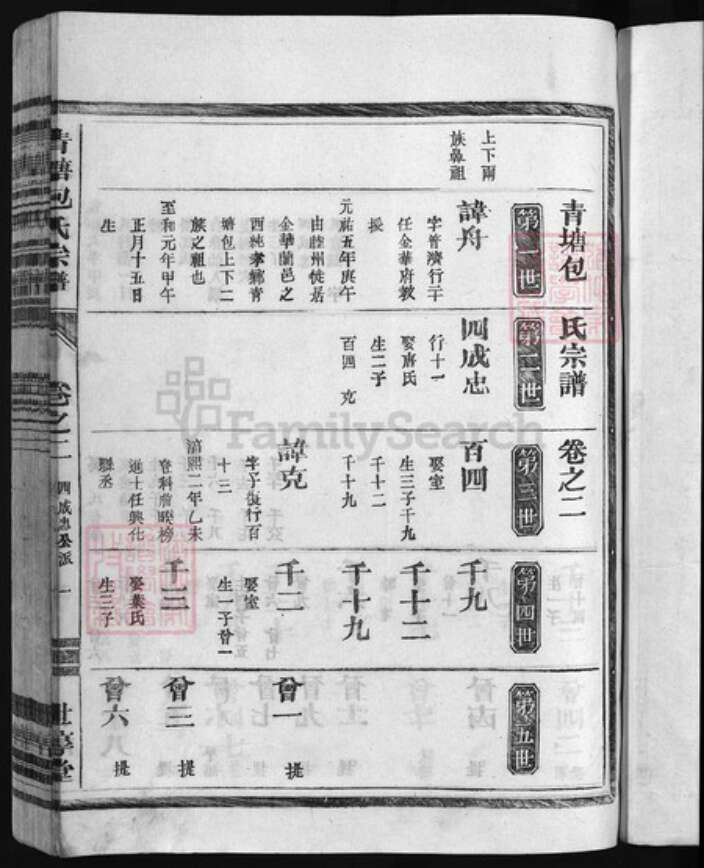 青塘包氏宗譜 卷之二
第一世
第二世
第三世
第四世
第五世
上下兩
族鼻祖
諱舟
字普濟行二
任金華府教
授
元祐五年庚午
由睦州徙居
金華蘭邑之
西純孝鄉青
塘包上下二
族之祖也
至和元年甲午
正月十五日
生
四成忠
行十一
娶唐氏
生二子
百四 克
百四
娶室
生三子千九
千十二
千十九
諱克
字子復行百
十三
淳熙二年乙未
登科詹騤榜
進士任興化
縣丞
千九
千十二
千十九
千二
娶室
生一子曾一
千三
娶葉氏
生三子
曾一 提
曾三 提
曾六 提
青塘包氏宗譜
卷之二
四成忠公派 一
世德堂
FamilySearch